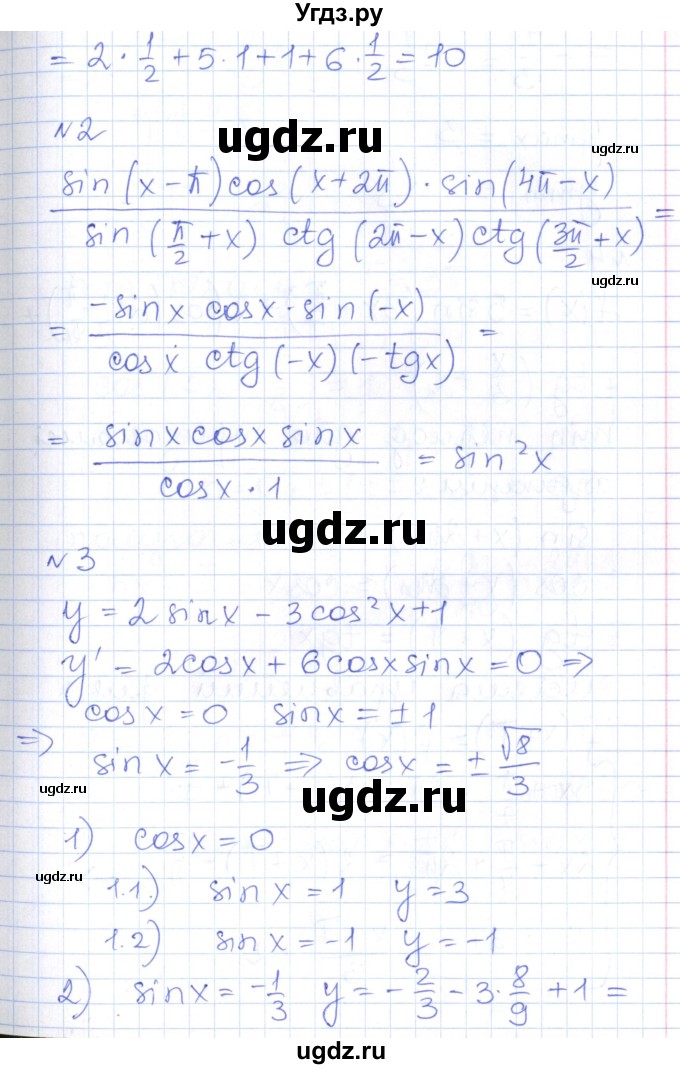 Угдз.ру
= 2 · 1/2 + 5 · 1 + 1 + 6 · 1/2 = 10
№2
ugdz.ru
ugdz.ru
sin(x-π)cos(x+2π) · sin(4π-x)
sin(π/2+x) ctg(2π-x)ctg(3π/2+x) =
ugdz.ru
= -sinx cosx · sin(-x) =
cosx ctg(-x)(-tgx)
= sinx cosx sinx = sin²x
cosx · 1
ugdz.ru
№3
y = 2sinx - 3cos²x+1
y' = 2cosx + 6cosxsinx = 0 ⇒
⇒ cosx = 0 sinx = ±1
sinx = -1/3 ⇒ cosx = ± √8/3
ugdz.ru
ugdz.ru
1) cosx = 0
ugdz.ru
1.1) sinx = 1 y = 3
1.2) sinx = -1 y = -1
ugdz.ru
2) sinx = -1/3 y = -2/3 - 3 · 8/9 + 1 =
ugdz.ru